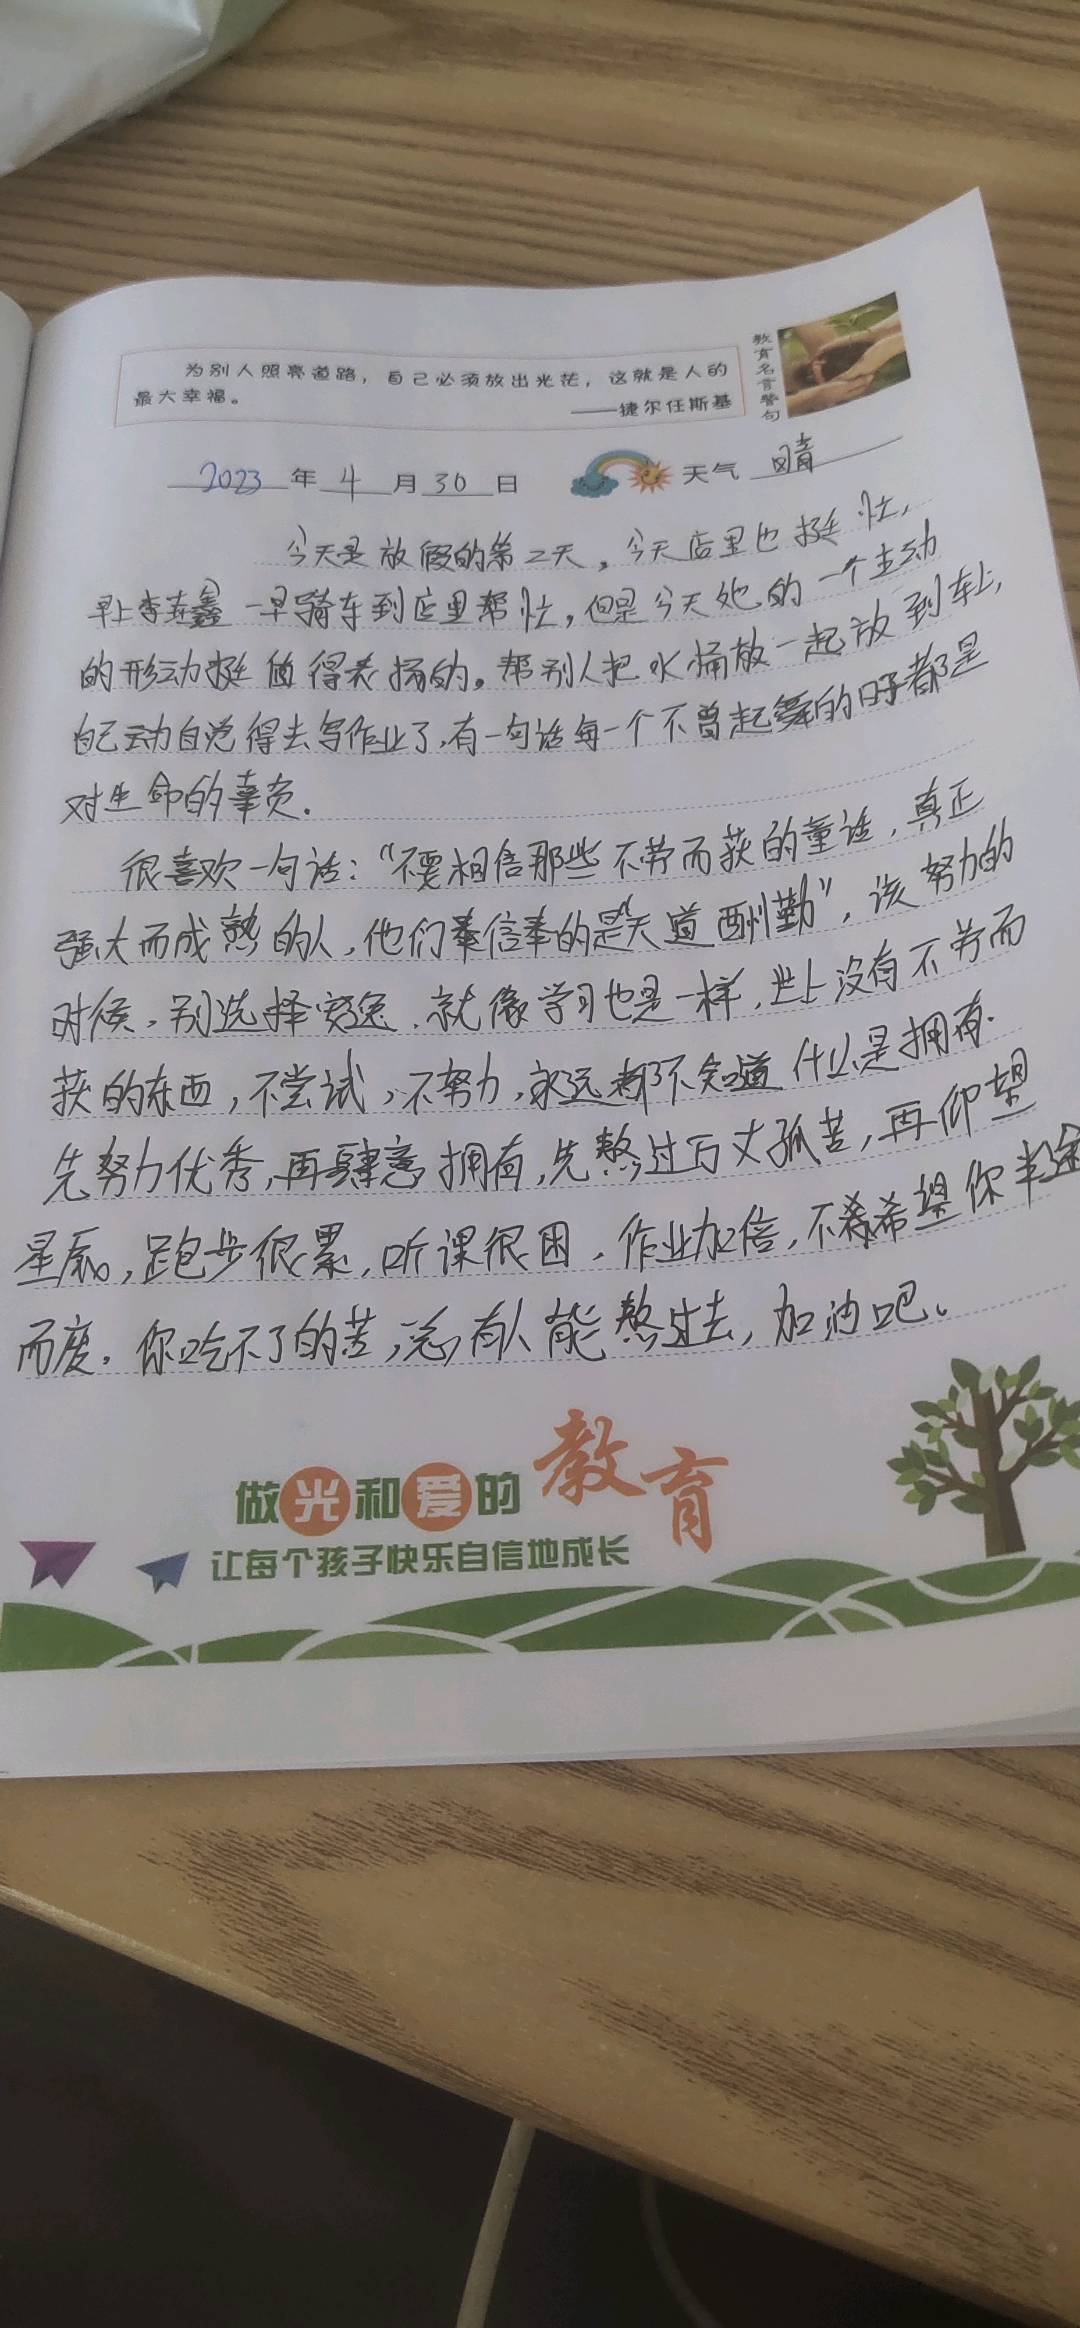 为别人照亮道路，自己必须放出光茫，这就是人的
最大幸福。
——捷尔任斯基
教育名言警句
2023年4月30日 天气 晴
今天是放假的第二天，今天店里也挺忙，
早上李 鑫一早骑车到店里帮忙，但是今天她的一个主动
的形动挺值得表扬的。帮别人把水桶放一起放到车上，
自己动自觉得去写作业了，有一句话每一个不曾起舞的日子都是
对生命的辜负.
很喜欢一句话：“不要相信那些不劳而获的童话，真正
强大而成熟的人，他们奉信奉的是“天道酬勤”，该努力的
时候，别选择安逸，就像学习也是一样，世上没有不劳而
获的东西，不尝试，不努力，永远都不知道什么是拥有.
先努力优秀，再肆意拥有，先熬过万丈孤苦，再仰望
星辰。，跑步很累，听课很困，作业加倍，不希望你半途
而废，你吃不了的苦，总有人能熬过去，加油吧。
做光和爱的教育
让每个孩子快乐自信地成长